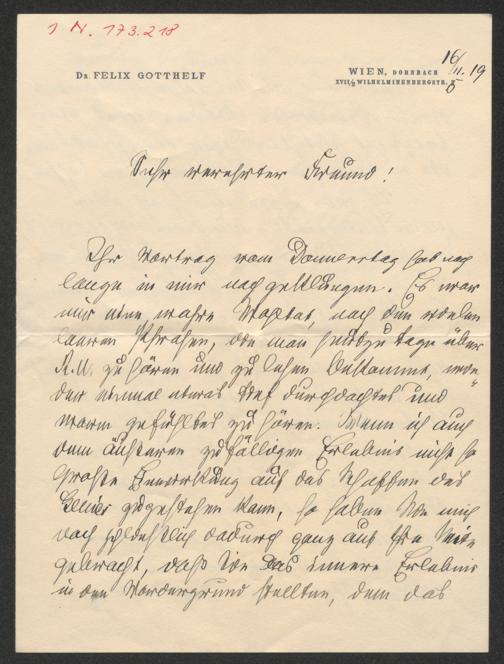 I N. 173.218
DR. FELIX GOTTHELF
WIEN, DORNBACH
XVII/2 WILHELMINENBERGSTR.
16/11. 19
Sehr verehrter Freund!
Ihr Vortrag vom Donnerstag hat noch
lange in mir nachgeklungen. Es war
mir eine wahre Wohltat, nach den vielen
leeren Phrasen, die man heutzutage über
R.W. zu hören und zu lesen bekommt, wie-
der einmal etwas tief durchdachtes und
warm gefühltes zu hören. Wenn ich auch
dem äußeren zufälligen Erlebnis nicht so
große Einwirkung auf das Schaffen des
Genies zugestehen kann, so haben Sie mich
doch schließlich dadurch ganz auf Ihre Seite
gebracht, daß Sie das innere Erlebnis
in den Vordergrund stellten, dem das